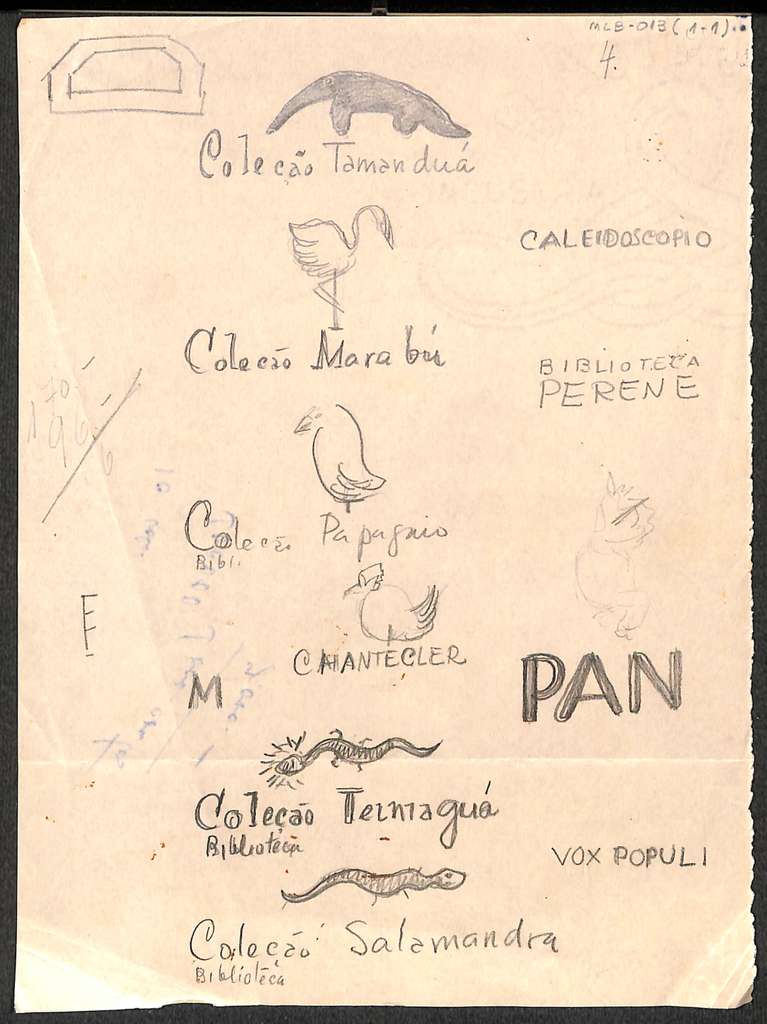 MLB-013(1-1)
4.
Coleção Tamanduá
CALEIDOSCOPIO
Coleção Marabú
BIBLIOTECA
PERENE
Coleção Papagaio
Bibli.
CHANTECLER
M
E
PAN
Coleção Teimaguá
Biblioteca
VOX POPULI
Coleção Salamandra
Biblioteca